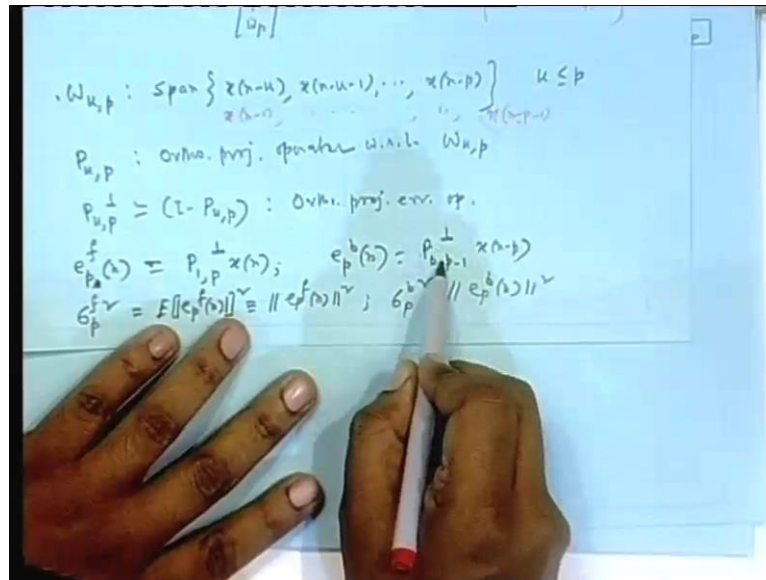 ω_p
. W_{u,p} : span { x(n-u), x(n-u-1), ..., x(n-p) } u ≤ p
x(n-1), x(n-p-1)
P_{u,p} : ortho. proj. operator w.r.t. W_{u,p}
P_{u,p}^⊥ = (I - P_{u,p}) : ortho. proj. err. op.
e_p^f(n) = P_{1,p}^⊥ x(n) ; e_p^b(n) = P_{0,p-1}^⊥ x(n-p)
σ_p^{f 2} = E[|e_p^f(n)|]^2 ≡ || e_p^f(n) ||^2 ; σ_p^{b 2} || e_p^b(n) ||^2